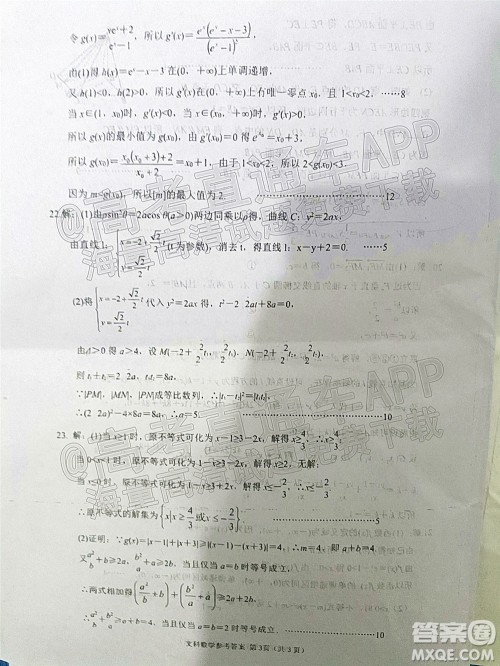 令g(x)=\frac{xe^x+2}{e^x-1}，所以g'(x)=\frac{e^x(e^x-x-3)}{(e^x-1)^2}
由(1)周h(x)=e^x-x-3在(0，+∞)上单调递增，
又h(1)<0，h(2)>0，所以g'(x)在(0，+∞)上有唯一零点x₀，且1<x₀<2，……8
当x∈(1，x₀)时，g'(x)<0；当x∈(x₀，+∞)时，g'(x)>0，
所以g(x)的最小值为g(x₀)，由g'(x₀)=0得e^{x₀}=x₀+3，
所以g(x₀)=\frac{x₀(x₀+3)+2}{x₀+2}=x₀+1，由于1<x₀<2，所以2<g(x₀)<3，
因为m<g(x₀)，所以m的最大值为2. ……12
22.解：(1)由ρsin²θ=2acosθ(a>0)两边同乘以ρ得，曲线C：y²=2ax，
由直线l：{x=-2+\frac{√2}{2}t (t为参数)，消去t，得直线l：x-y+2=0. ……5
(2)将{x=-2+\frac{√2}{2}t y=\frac{√2}{2}t 代入y²=2ax得，t²-2 2at+8a=0，
由Δ>0得a>4，设M(-2+\frac{2}{2}t₁，\frac{2}{2}t₁)，N(-2+\frac{2}{2}t₂，\frac{2}{2}t₂)，
则t₁+t₂=2 2a，t₁t₂=8a，
∵|PM|，|MN|，|PN|成等比数列，∴|t₁-t₂|²=|t₁t₂|，
∴(2 2a)²-4×8a=8a，∴a=5. ……10
23. 解：(1)当x≥1时，原不等式可化为x-1≥3-2x，解得x≥\frac{4}{3}，∴x≥\frac{4}{3}；
当0<x<1时，原不等式可化为1-x≥3-2x，解得x≥2，无解；
当x≤0时，原不等式可化为1-x≥3+2x，解得x≤-\frac{2}{3}，∴x≤-\frac{2}{3}，
∴原不等式的解集为{x|x≥\frac{4}{3}或x≤-\frac{2}{3}}. ……5
(2)证明：∵g(x)=|x-1|+|x+3|≥|(x-1)-(x+3)|=4，∴m=4，即a+b=4，
又\frac{a²}{b}+b≥2a，\frac{b²}{a}+a≥2b，当且仅当a=b时等号成立，
∴两式相加得(\frac{a²}{b}+b)+(\frac{b²}{a}+a)≥2a+2b，
∴\frac{a²}{b}+\frac{b²}{a}≥a+b=4，当且仅当a=b=2时等号成立. ……10
文科数学参考答案 第3页（共3页）
@高考直通车APP
海量高考试题免费下载
@高考直通车APP
海量高考试题免费下载